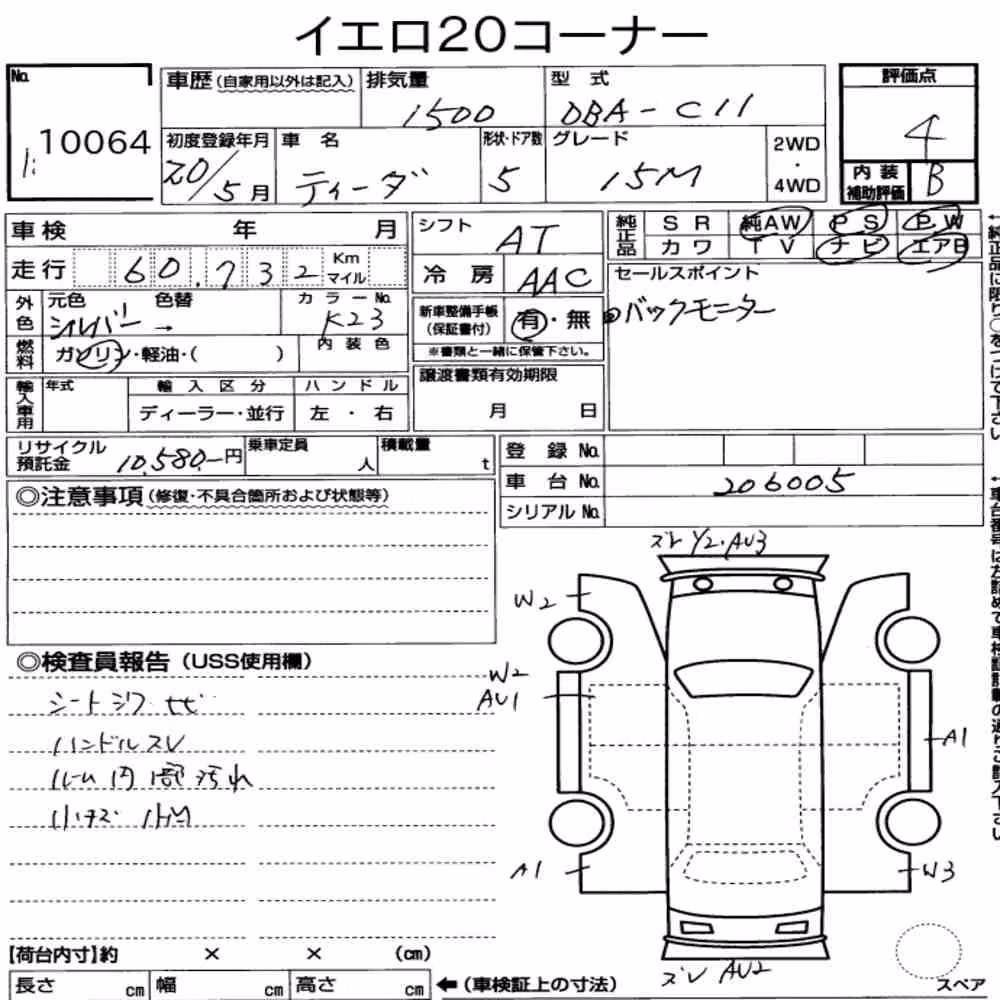 イエロ20コーナー
No. 10064
車歴(自家用以外は記入) 排気量 1500 型式 DBA-C11
初度登録年月 20/5月 車名 ティーダ 形状・ドア数 5 グレード 15M 2WD・4WD
評価点 4
内装補助評価 B
車検 年 月
走行 60,732 Km マイル
外色 元色 シルバー → 色替 カラーNo. K23
燃料 ガソリン・軽油・( ) 内装色
輸入車用 年式 輸入区分 ハンドル
ディーラー・並行 左・右
シフト AT
冷房 AAC
新車整備手帳(保証書付) 有・無
※書類と一緒に保管下さい。
譲渡書類有効期限
月 日
純正品 SR 純AW PS PW
カワ TV ナビ エアB
セールスポイント
バックモニター
リサイクル預託金 10,580.-円 乗車定員 人 積載量 t
登録No.
車台No. 206005
シリアルNo.
◎注意事項(修復・不具合箇所および状態等)
◎検査員報告(USS使用欄)
シートシワ
ハンドルスレ
ルーム内部汚れ
ズレ Y2.AU3
W2
W2
AU1
A1
A1
W3
ズレ AU2
【荷台内寸】約 × × (cm)
長さ cm 幅 cm 高さ cm ←(車検証上の寸法)
スペア
↑純正品に限り○をつけて下さい